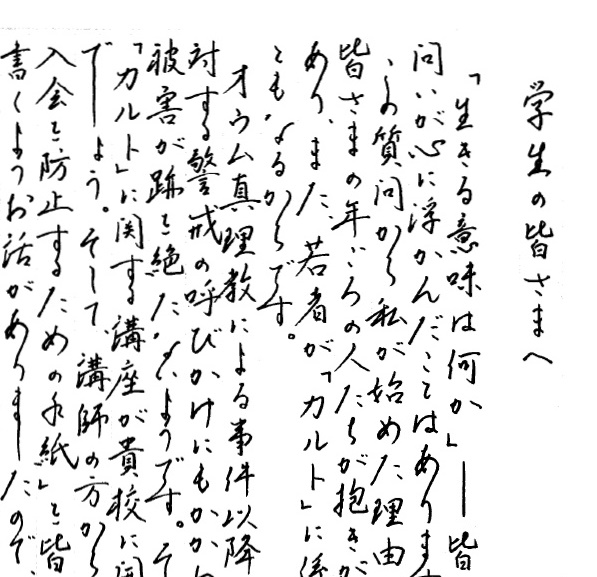 学生の皆さまへ
「生きる意味は何か」―皆
問いが心に浮かんだことはありませ
この質問から私が始めた理由
皆さまの年ごろの人たちが抱きが
あり、また、若者が「カルト」に係
ともなるからです。
オウム真理教による事件以降
対する警戒の呼びかけにもかかわ
被害が跡を絶たないようです。そ
「カルト」に関する講座が貴校に開
でしょう。そして、講師の方から
入会を防止するための手紙」を皆
書くようお話がありましたので、